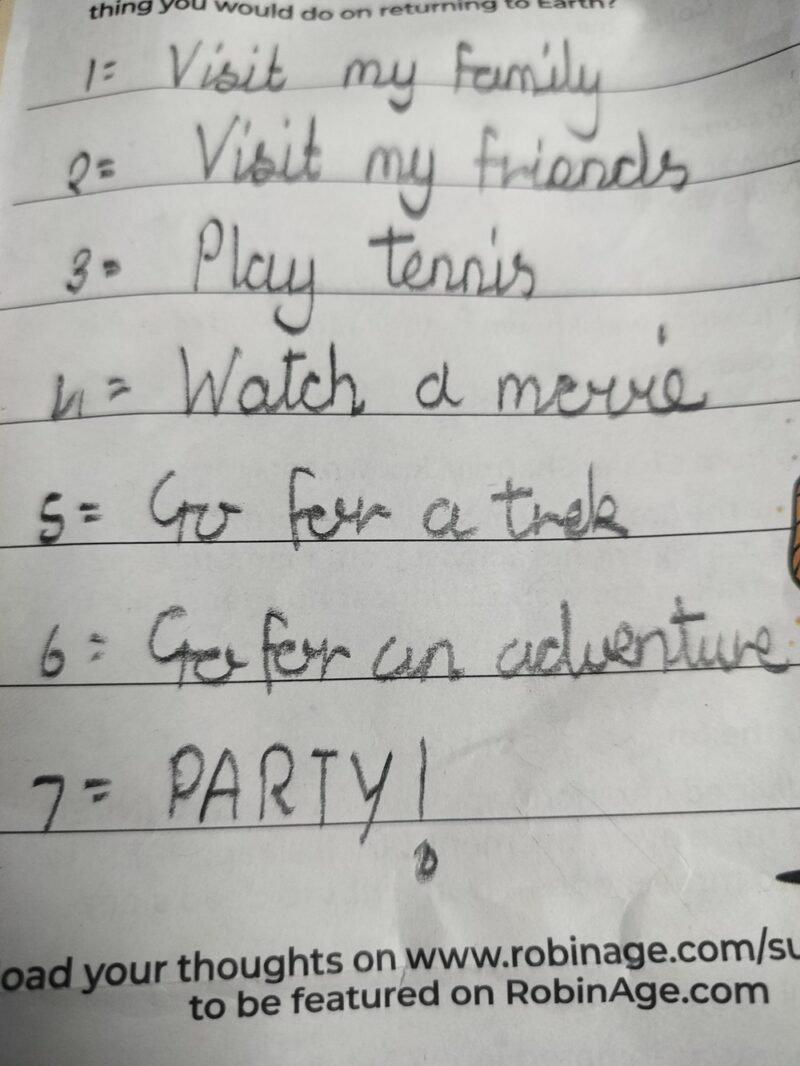 thing you would do on returning to Earth?
1= Visit my family
2= Visit my friends
3= Play tennis
4= Watch a movie
5= Go for a trek
6= Go for an adventure
7= PARTY!
oad your thoughts on www.robinage.com/su
to be featured on RobinAge.com